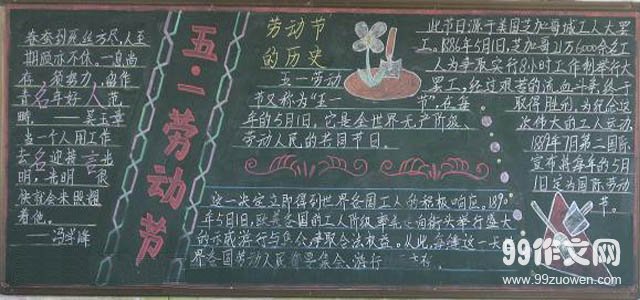 春蚕到死丝方尽,人至
期颐亦不休。一息尚
存须努力,留作
青 好 范
畴。——吴玉章
当一个人用工作
去 迎接 光
明,光明 很
快就会来照耀
着他。
——冯学峰
五·一劳动节
劳动节
的历史
五一劳动
节又称为“五一
节”,在每
年的5月1日,它是全世界无产阶级、
劳动人民的共同节日。
此节日源于美国芝加哥城工人大罢
工,1886年5月1日,芝加哥21万6000余名工
人为争取实行8小时工作制举行大
罢工,经过艰苦的流血斗争,终于
取得胜利,为纪念这
次伟大的工人运动,
1889年7月第二国际
宣布将每年的5月
1日定为国际劳动
节。
这一决定立即得到世界各国工人的积极响应。1890
年5月1日,欧美各国的工人阶级率先走向街头,举行盛大
的示威游行与集会,争取合法权益。从此,每逢这一天
界各国劳动人民 集会、游行
99作文网
www.99zuowen.com